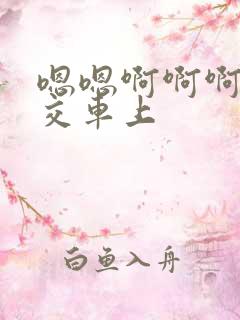 嗯嗯啊啊啊
交車上
白鱼入舟